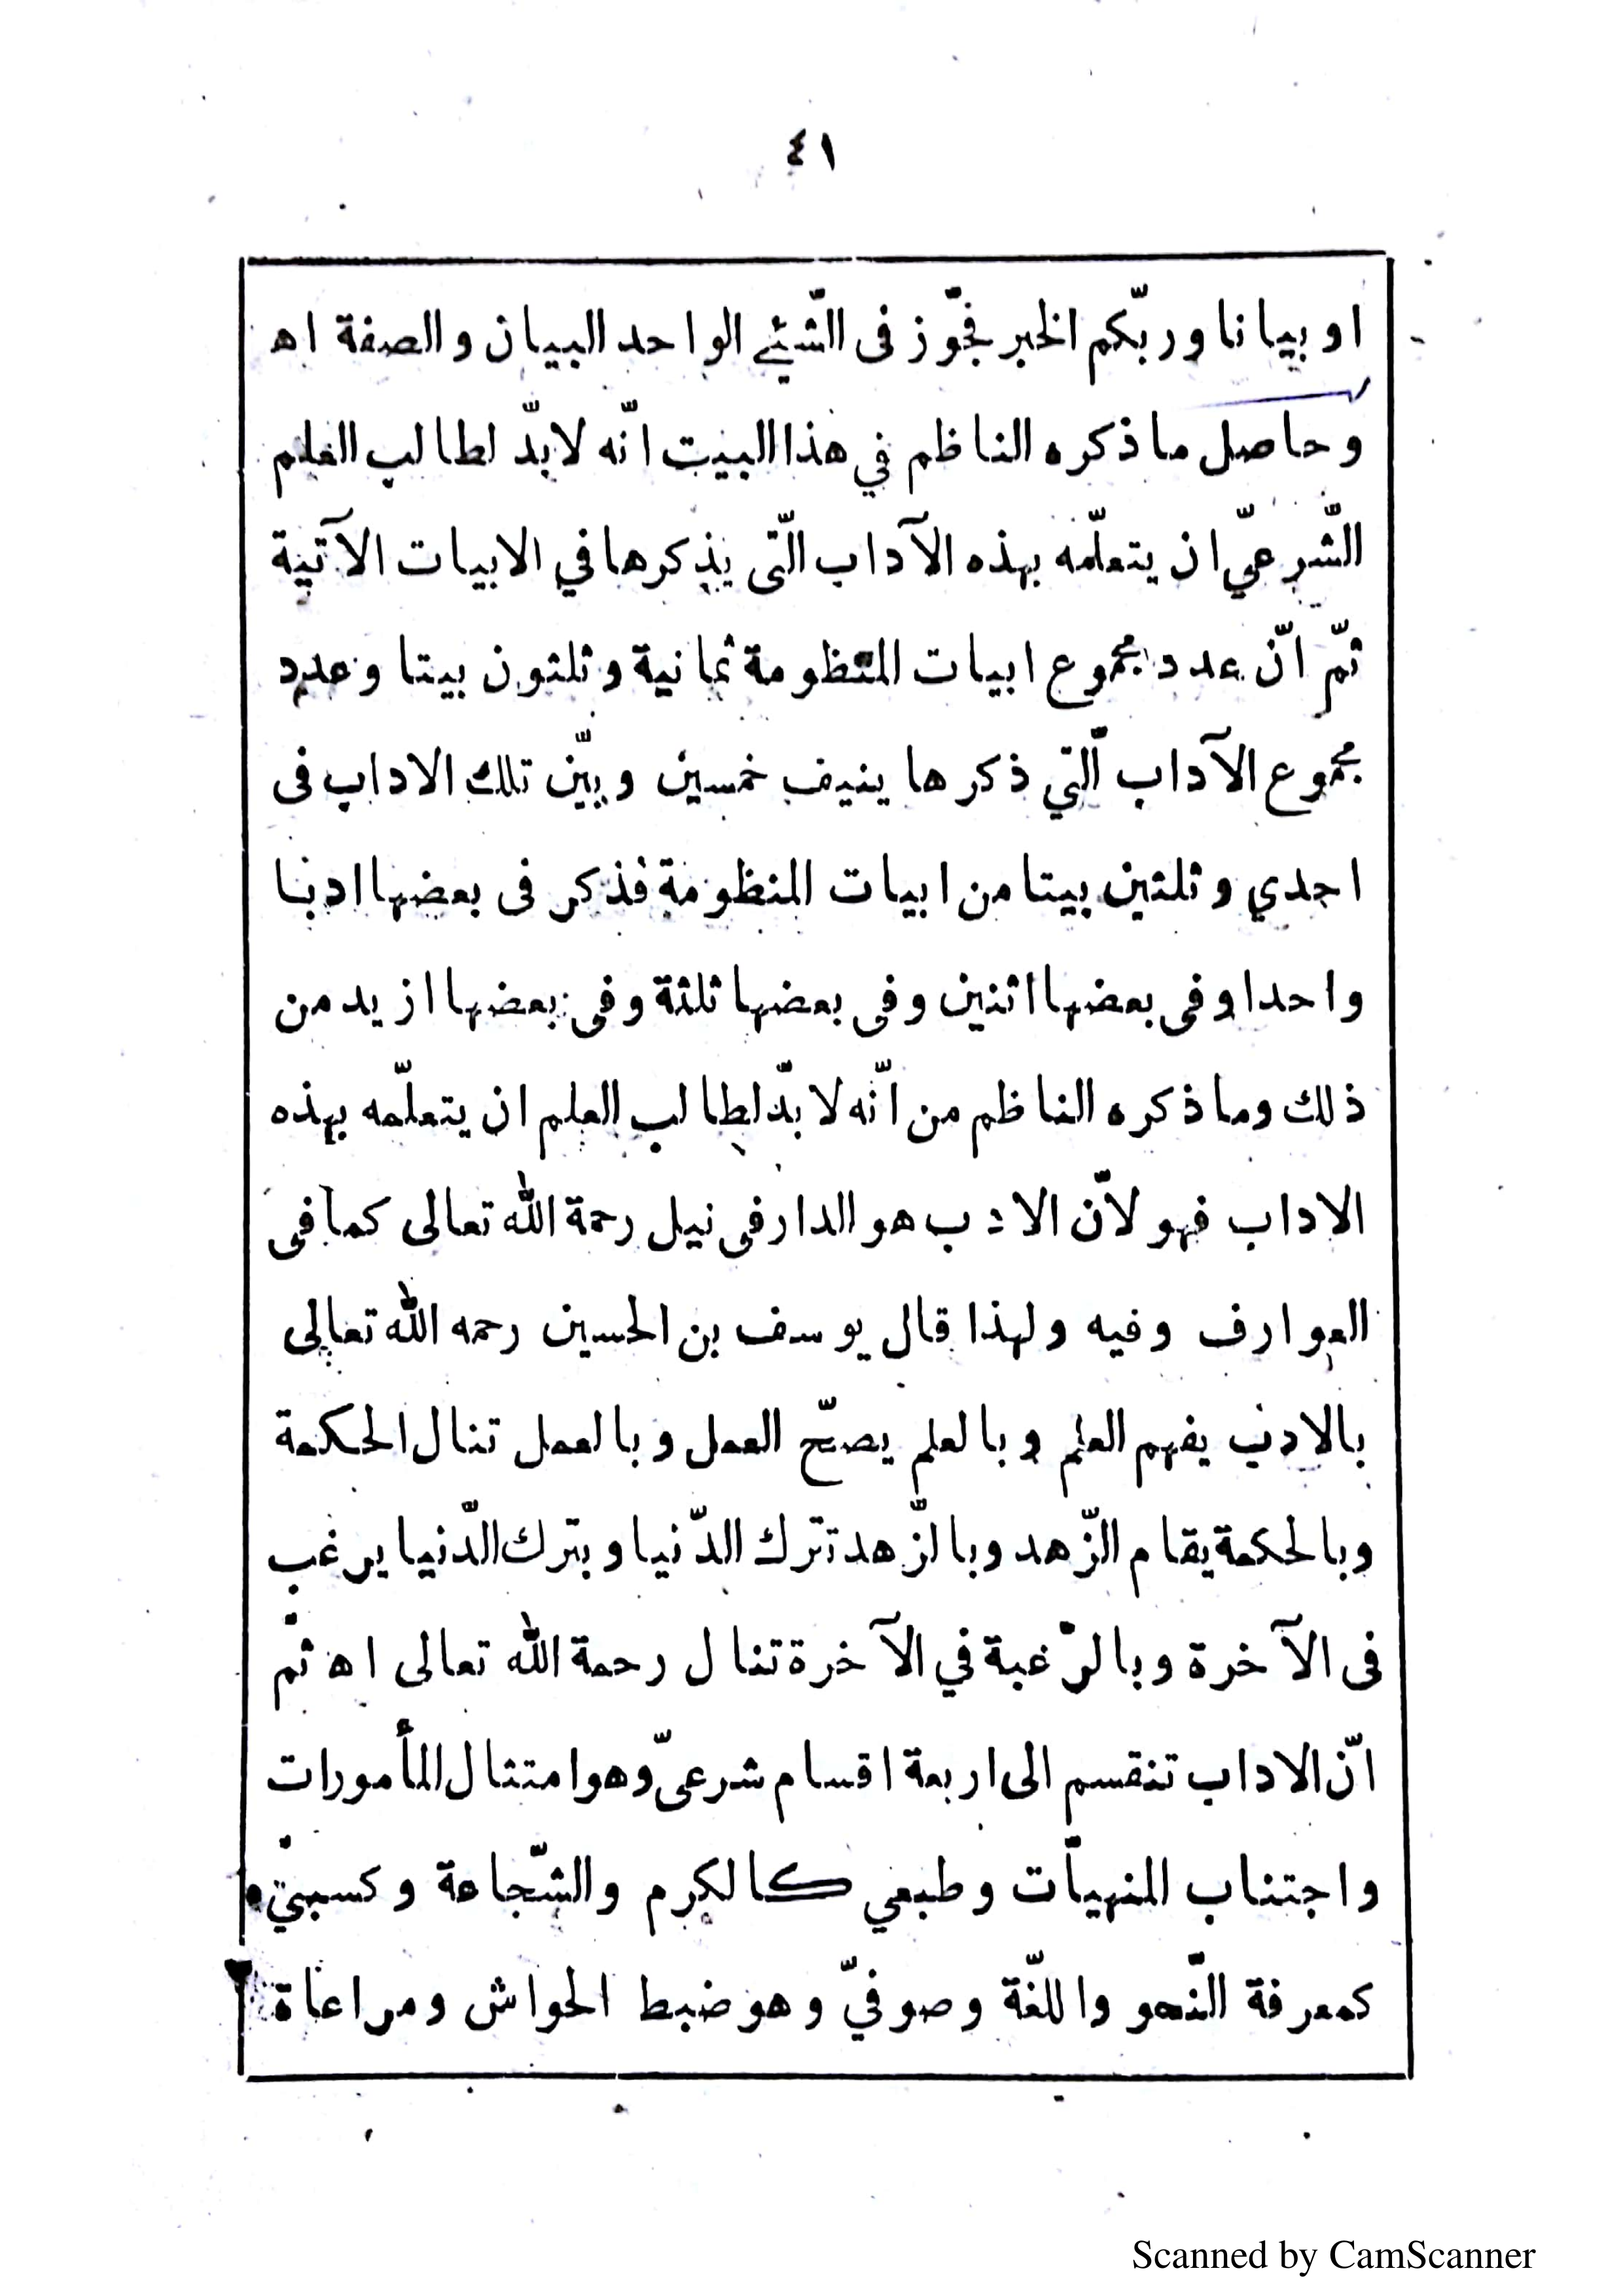 ٤١
او بيانا وربّكم الخبر فجّوز فى الشّيئ الواحد البيان والصفة اه
وحاصل ما ذكره الناظم في هذا البيت انّه لابدّ لطالب العلم
الشّرعيّ ان يتعلّمه بهذه الآداب الّتى يذكرها في الابيات الآتية
ثمّ انّ عدد مجموع ابيات المنظومة ثمانية وثلثون بيتا وعدد
مجموع الآداب الّتي ذكرها ينيف خمسين وبيّن تلك الاداب فى
احدي وثلثين بيتا من ابيات المنظومة فذكر فى بعضها ادبا
واحدا وفى بعضها اثنين وفى بعضها ثلثة وفى بعضها ازيد من
ذلك وما ذكره الناظم من انّه لابدّ لطالب العلم ان يتعلّمه بهذه
الاداب فهو لانّ الادب هو الدار فى نيل رحمة الله تعالى كما فى
العوارف وفيه ولهذا قال يوسف بن الحسين رحمه الله تعالى
بالادب يفهم العلم وبالعلم يصحّ العمل وبالعمل تنال الحكمة
وبالحكمة يقام الزّهد وبالزّهد تترك الدّنيا وبترك الدّنيا يرغب
فى الآخرة وبالرّغبة في الآخرة تنال رحمة الله تعالى اه ثمّ
انّ الاداب تنقسم الى اربعة اقسام شرعىّ وهو امتثال المأمورات
واجتناب المنهيّات وطبعي كالكرم والشّجاعة وكسبيّ
كمعرفة النّحو واللّغة وصوفيّ وهو ضبط الحواش ومراعاة
Scanned by CamScanner